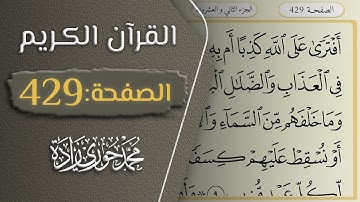 القرآن الكريم
الصفحة:429
محمد حوري زادة
الصفحة 429
الجزء الثاني و العشرو
أَفْتَرَىٰ عَلَى ٱللَّهِ كَذِبًا أَم بِهِ
فِى ٱلْعَذَابِ وَٱلضَّلَٰلِ ٱلْ
وَمَا خَلْفَهُم مِّنَ ٱلسَّمَآءِ وَٱ
أَوْ نُسْقِطْ عَلَيْهِمْ كِسَفًا
لِّكُلِّ عَبْدٍ مُّنِي